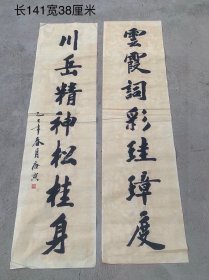 长141宽38厘米
雲霞詞彩珪璋度
川岳精神松桂身
春月